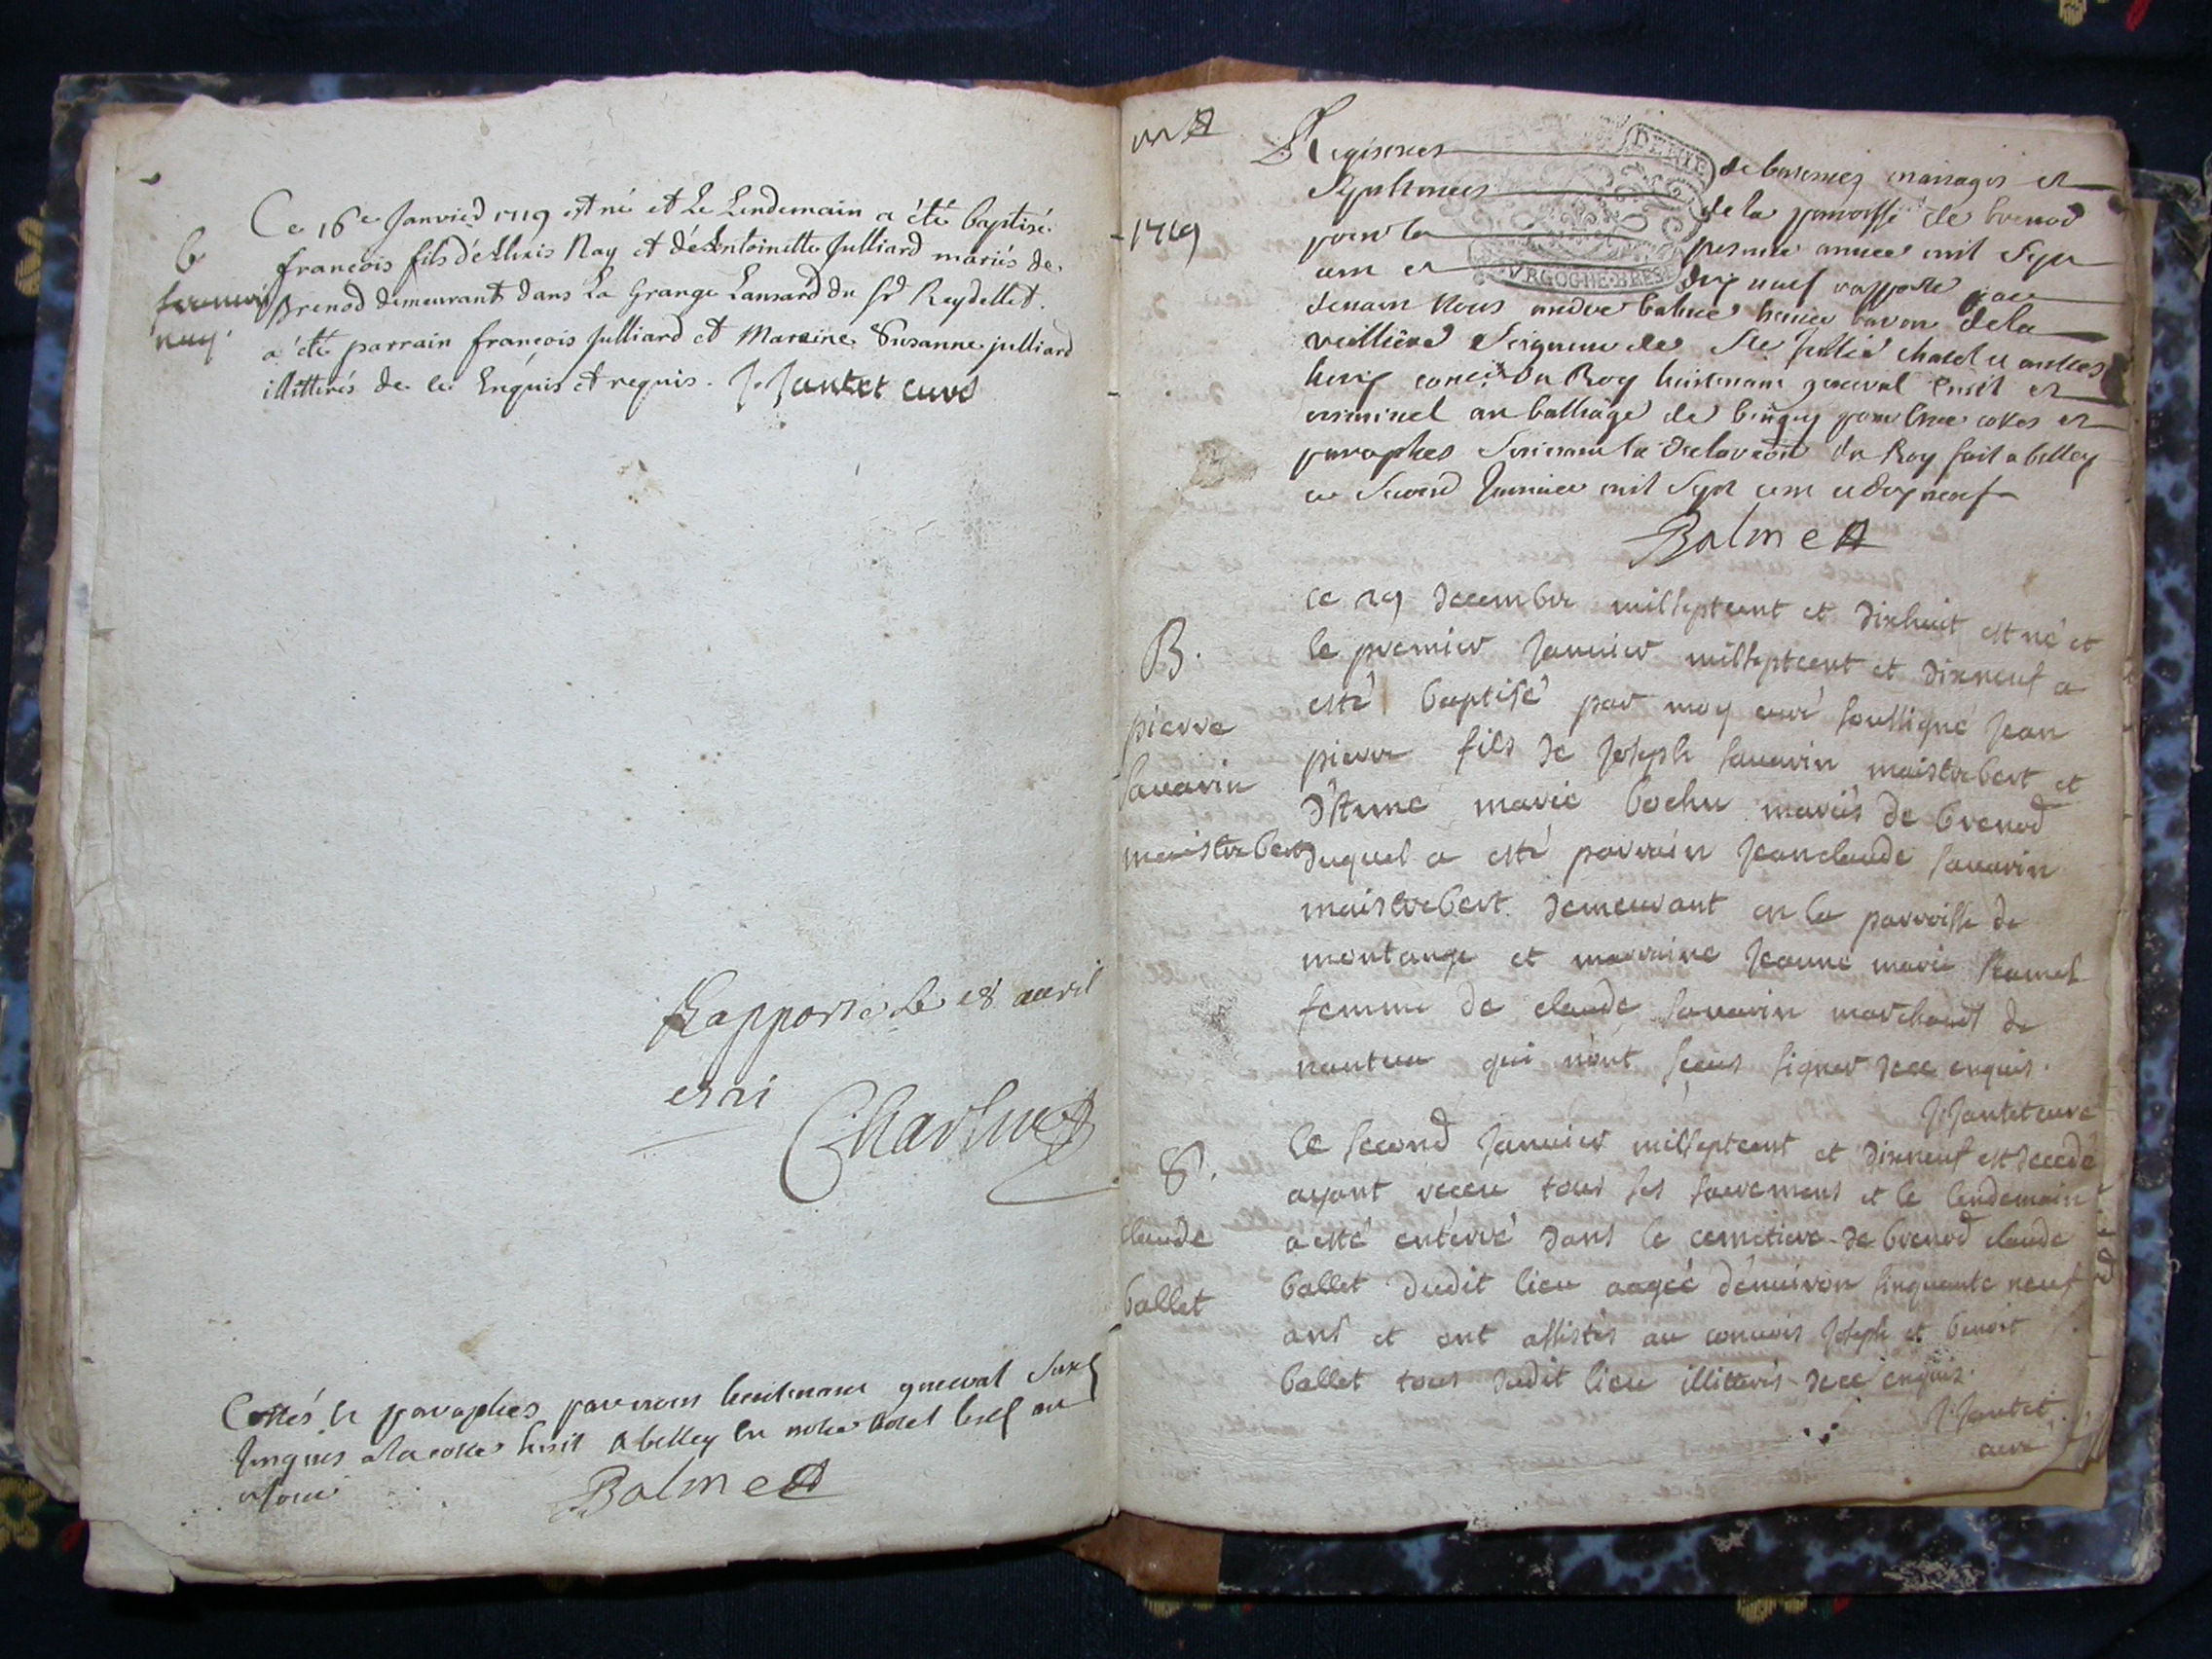 Ce 16e Janvied 1719 est né et Le Lendemain a été baptisé
b
francois fils d'Alexis Nay et d'Antoinette Julliard mariés de
francois
Brenod demeurant dans La Grange Lansard du Sr Reydellet.
nay
a été parrain francois julliard et Maraine Susanne julliard
illitterés de ce Enquis et requis. J Jantet curé
Rapporté Le 18 avril
Cottés et paraphés par nous lieutenant general
jusques a la cotte huit A belley en notre hotel
Balme
1719
Registres de batesmes mariages et
Sepultures de la parroisse de brenod
pour la presente année mil sept
cent et dix neuf rapporté par
devant Nous andre balme baron de la
Seigneur de Ste Jullie
du Roy lieutenant general Civil et
criminel au balliage de bugey cottes et
paraphes Suivant la declaraon du Roy fait a belley
ce Second Janvier mil Sept cent et dix neuf
Balme
ce 29 decembre millseptcent et dixhuit est né et
B.
le premier Januier millseptcent et dixneuf a
esté baptisé par moy curé soussigné Jean
pierre
pierre fils de Joseph sauarin maistrebert et
sauarin
d'Anne marie bochu mariés de brenod
maistrebert
duquel a esté parrain Jeanclaude sauarin
maistrebert demeurant en la parroisse de
montange et marraine Jeanne marie
femme de claude sauarin marchand de
nantua qui n'ont sceus signer dece enquis.
J Jantet curé
le second Januier millseptcent et dixneuf est decedé
S.
ayant receu tous ses sacremens et le lendemain
claude
a esté enterré dans le cemetiere de brenod claude
ballet
ballet dudit lieu aagéé d'enuiron sinquante neuf
ans et ont assistés au conuois Joseph et benoit
ballet tous dudit lieu illitterés dece enquis.
J Jantet
curé